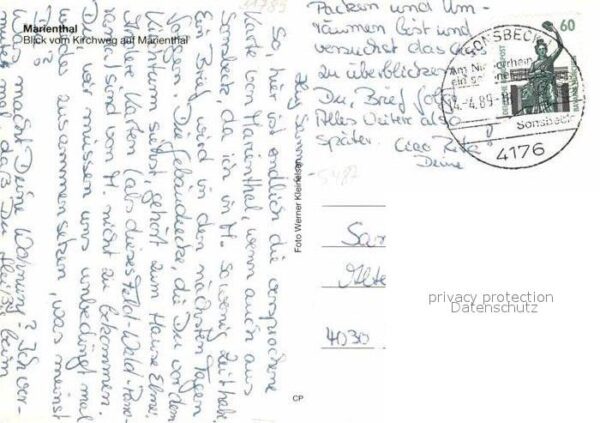 Marienthal
Blick vom Kirchweg auf Marienthal
Hey San
So, hier ist endlich die versprochene
Karte von Marienthal, wenn auch aus
Sonsbeck, da ich in M. so wenig Zeit habe.
Ein Brief wird in den nächsten Tagen
folgen. Die Gebäudeecke, die Du vor dem
Kirchturm siehst, gehört zum Hause Elmer.
Andere Karten (als dieses Feld-Wald-
sind von M. nicht zu bekommen.
Du, wir müssen uns unbedingt mal
wieder zusammensetzen, was meinst
Du?
Was macht Deine Wohnung? Ich ver-
mute mal, daß Du fleißig beim
Packen und Um-
räumen bist und
versuchst das
zu überblicken
Du, Brief folgt
Alles Weitere also
später. Ciao Rita
Deine
Foto Werner Kleinelsen
CP
SONSBECK
Am Niederrhein
4.-4.89-
Sonsbeck
4176
60
DEUTSCHE BUNDESPOST
San
Alte
4030
privacy protection
Datenschutz